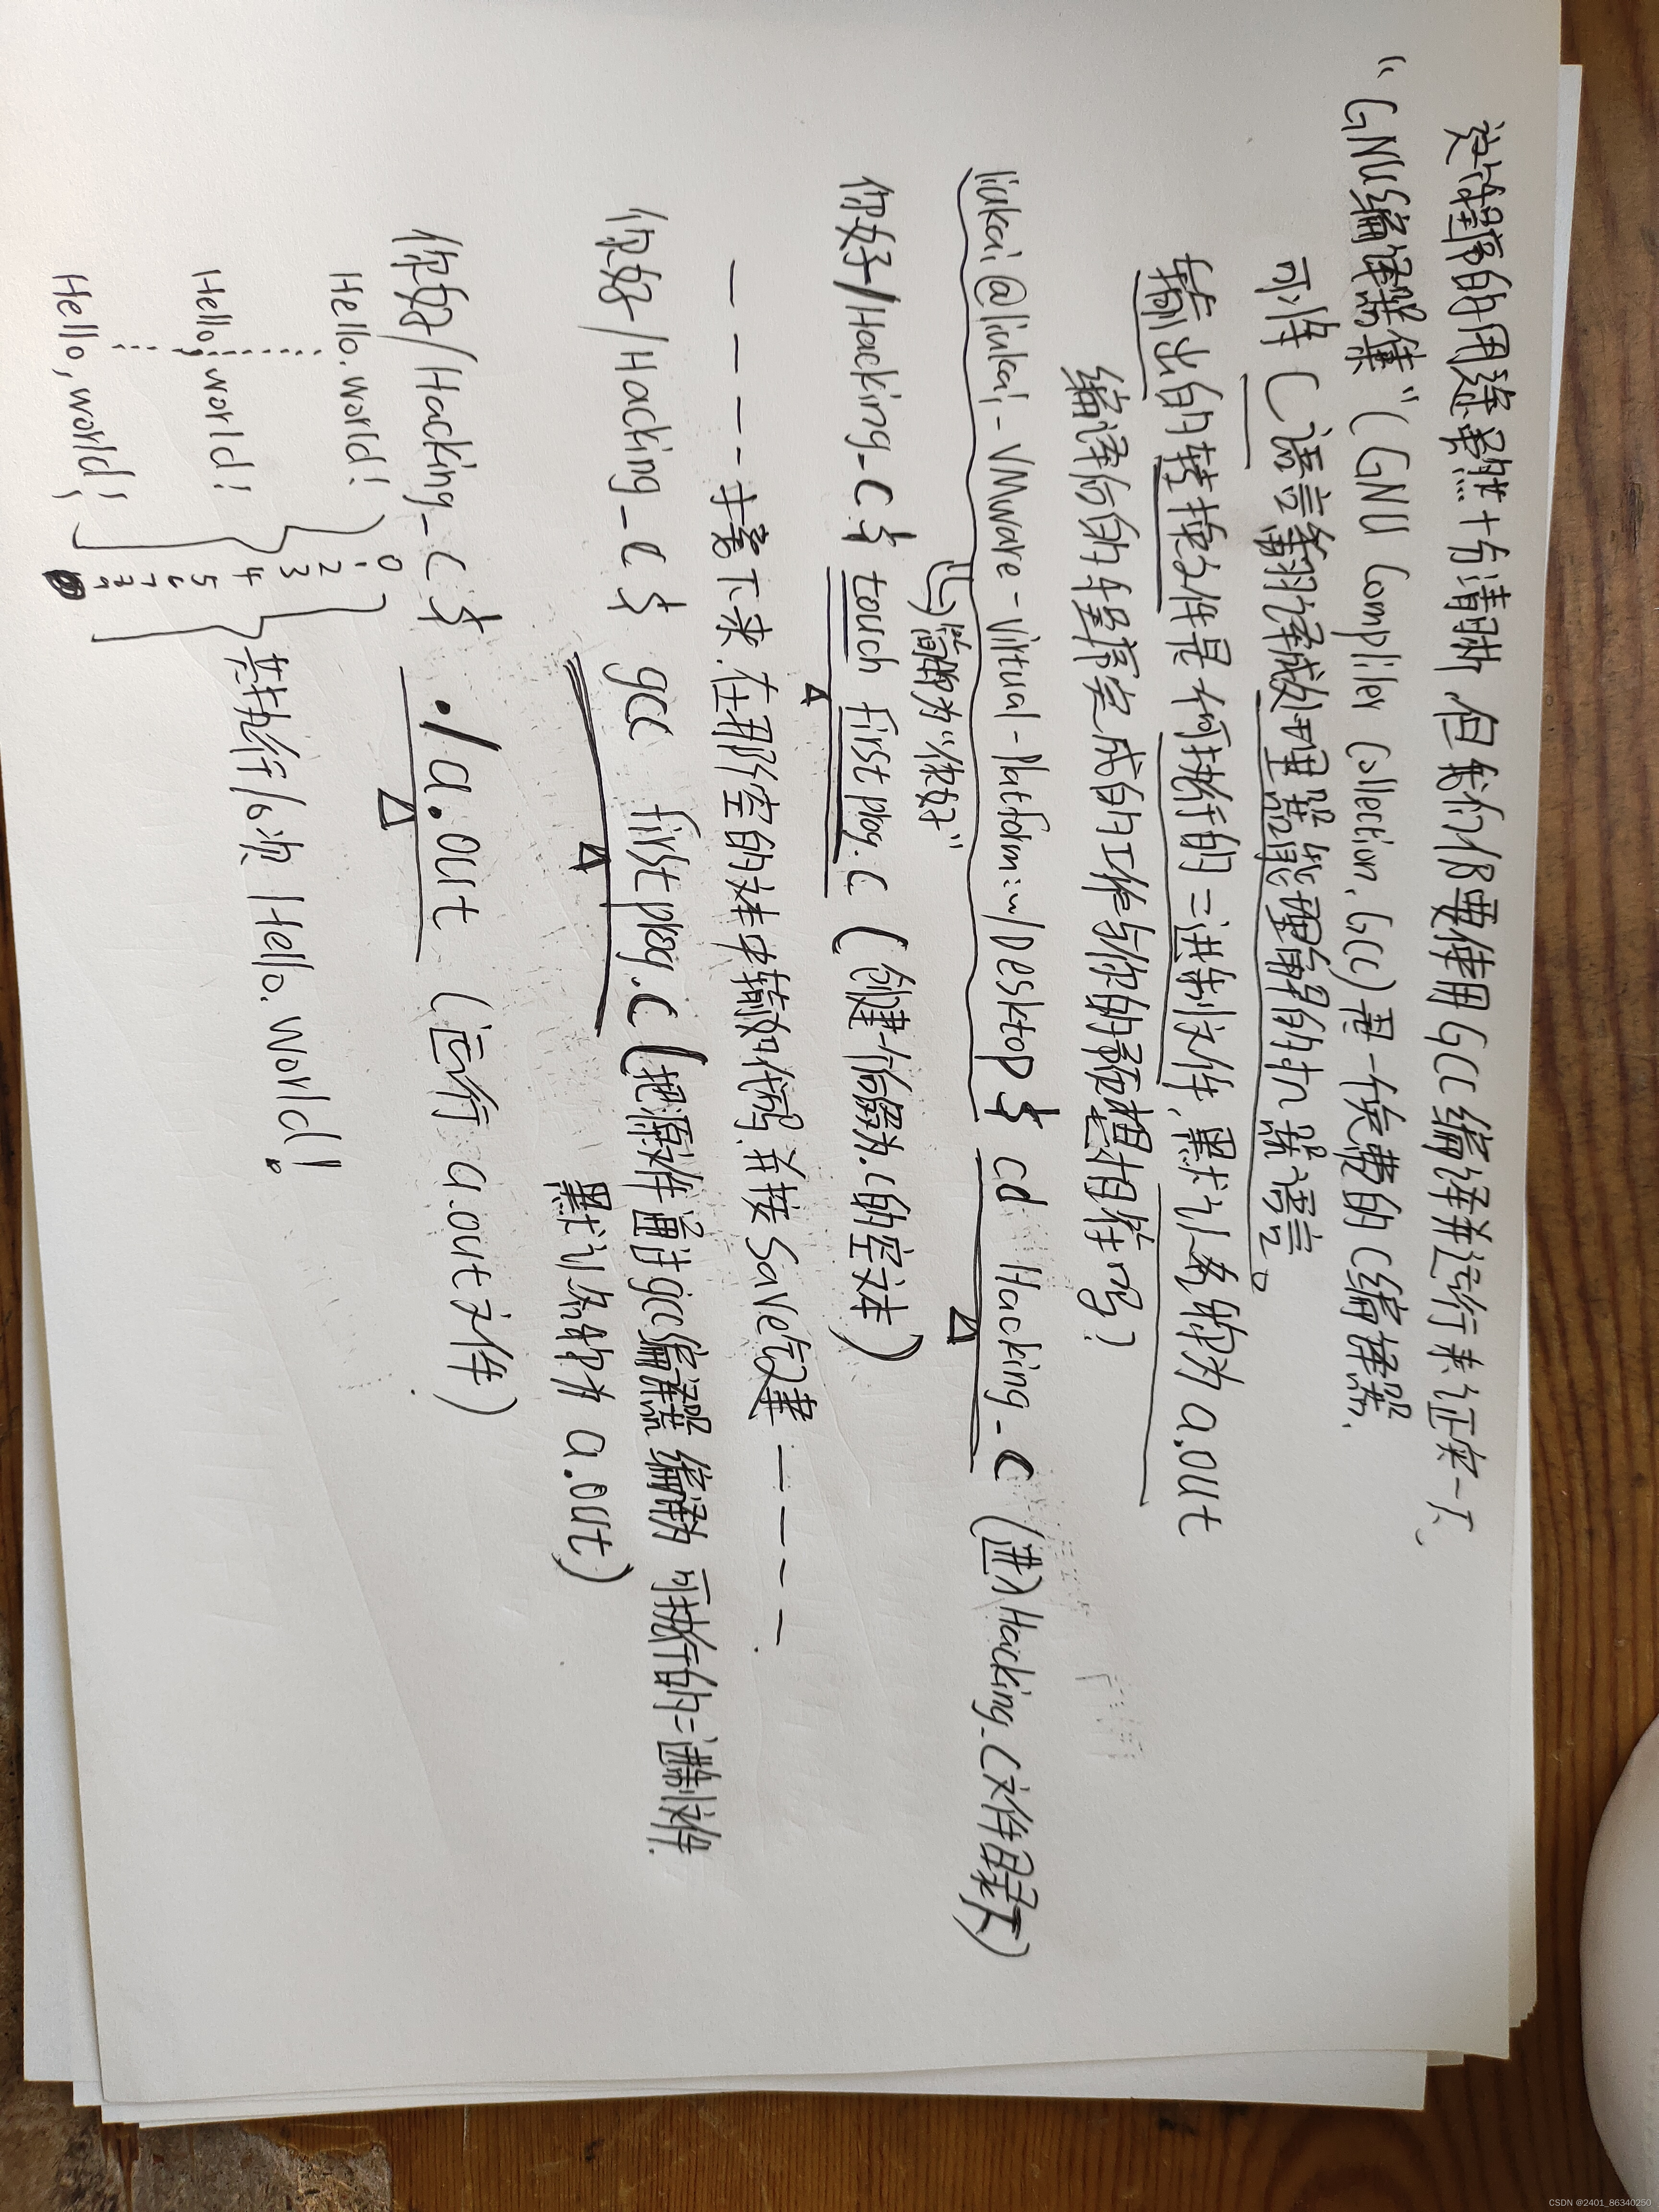 这段程序的用途虽然十分清晰,但我们仍要使用GCC编译并运行来证实一下、
“GNU编译器集”(GNU Compliler Collection. GCC)是一侯免费的C编译器.
可将C语言翻译成处理器能理解的机器语言。
输出的转换文件是可执行的二进制文件,默认名称为a.out
编译后的程序完成的工作与你的预想相符吗?
liukai@liukai-VMware-Virtual-Platform:~/Desktop$ cd Hacking_C (进入Hacking_C文件目录下)
简称为“你好”
你好/Hacking_C$ touch firstprog.C (创建一个后缀为.C的空文本)
- - - - 接下来.在那个空的文本中输如代码.并按Save按键 - - - -.
你好/Hacking_C$ gcc firstprog.C (把源文件通过gcc编译器编译为可执行的二进制文件.
默认名称为 a.out)
你好/Hacking_C$ ./a.out (运行 a.out文件)
Hello.world! 0
1
2
Hello,world! 3
4 共执行10次 Hello.World!
5
6
7
Hello,world! 9